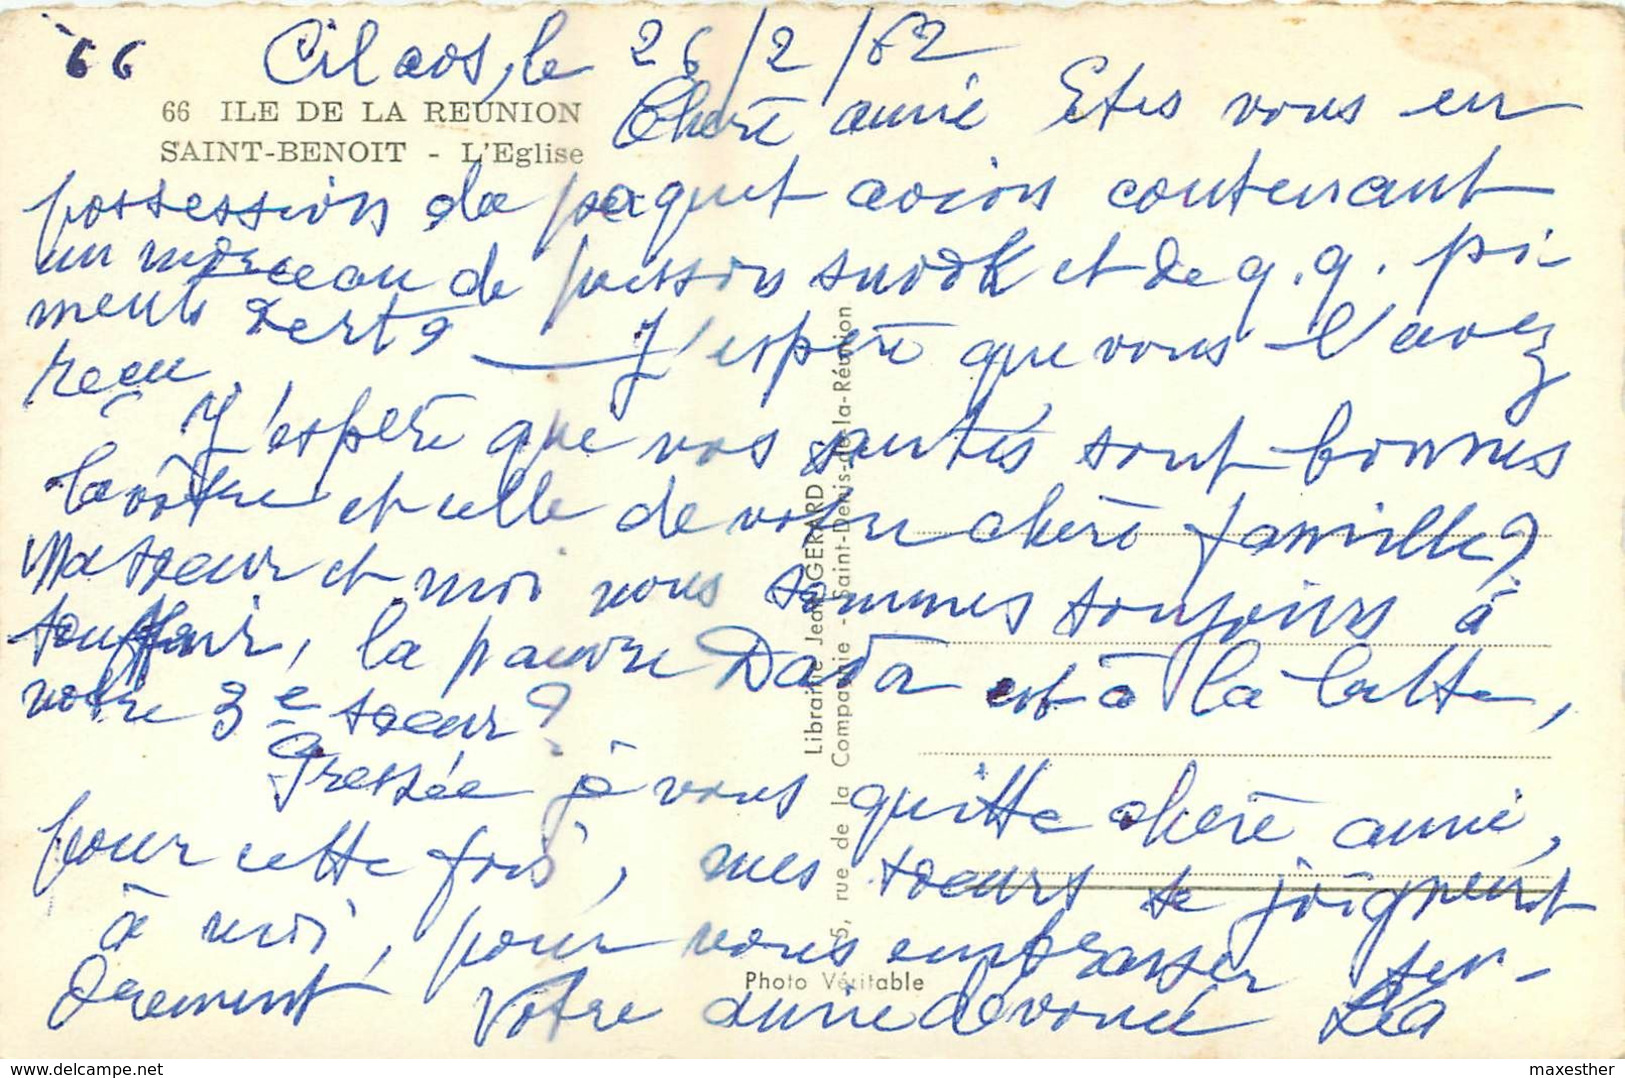 66 Cilaos, le 26/2/62
66 ILE DE LA REUNION
SAINT-BENOIT - L'Eglise
Chere amie Etes vous en
possession de paquet avion contenant
un morceau de poisson snoek et de q.q. pi-
ments verts? J'espere que vous l'avez
recu
J'espere que vos santés sont bonnes
la vôtre et celle de votre chère famille?
Ma soeur et moi nous sommes toujours à
souffrir, la pauvre Dada est à la latte,
votre 3e soeur?
Pressée je vous quitte chere amie,
pour cette fois, mes soeurs se joignent
à moi, pour vous embrasser ten-
drement Votre amie devouée Léa
Librairie Jean GERARD
5, rue de la Compagnie - Saint-Denis-de-la-Réunion
Photo Véritable
maxesther